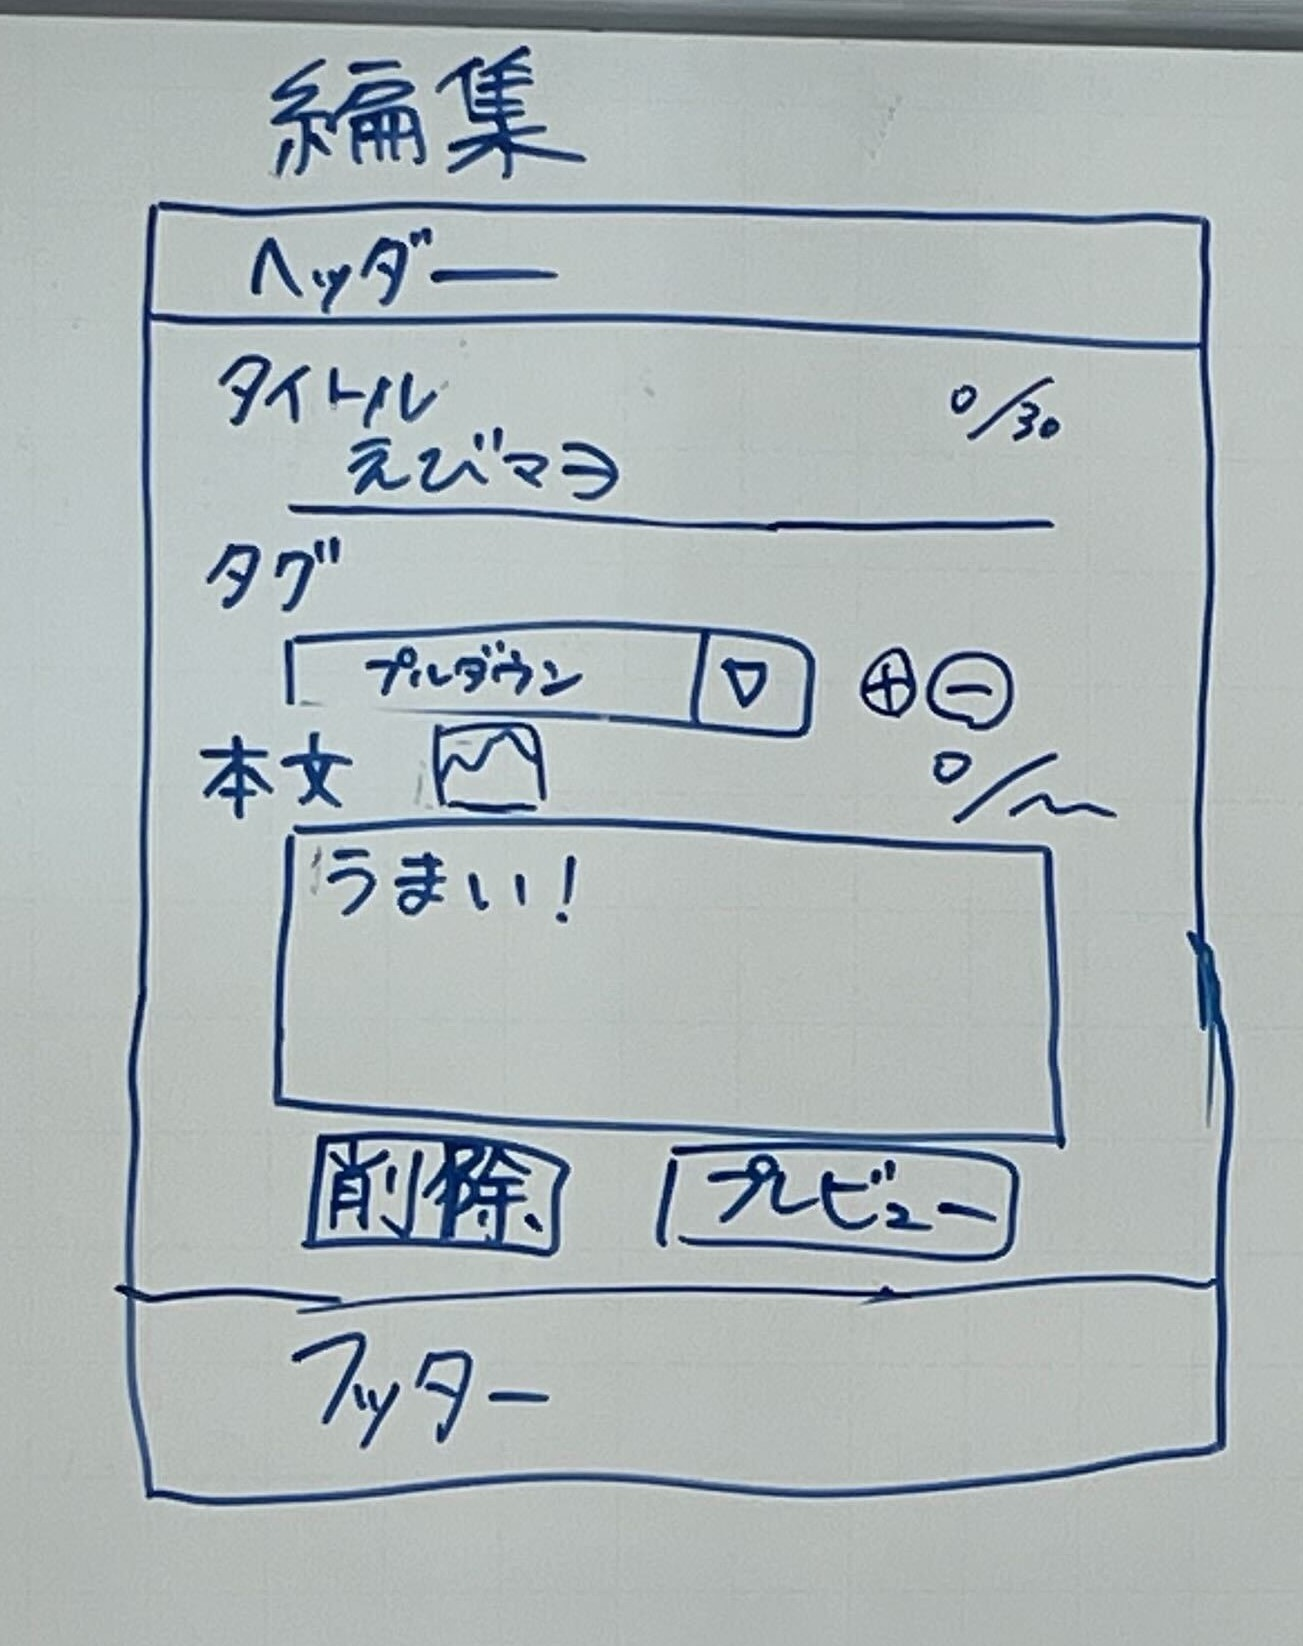 編集
ヘッダー
タイトル 0/30
えびマヨ
タグ
プルダウン ▽ ⊕ ⊖
本文 0/
うまい!
削除 プレビュー
フッター